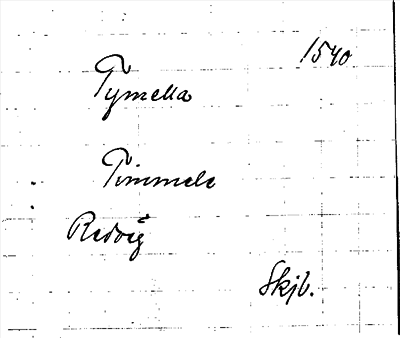 1540
Tymella
Timmele
Redväg
Skjb.